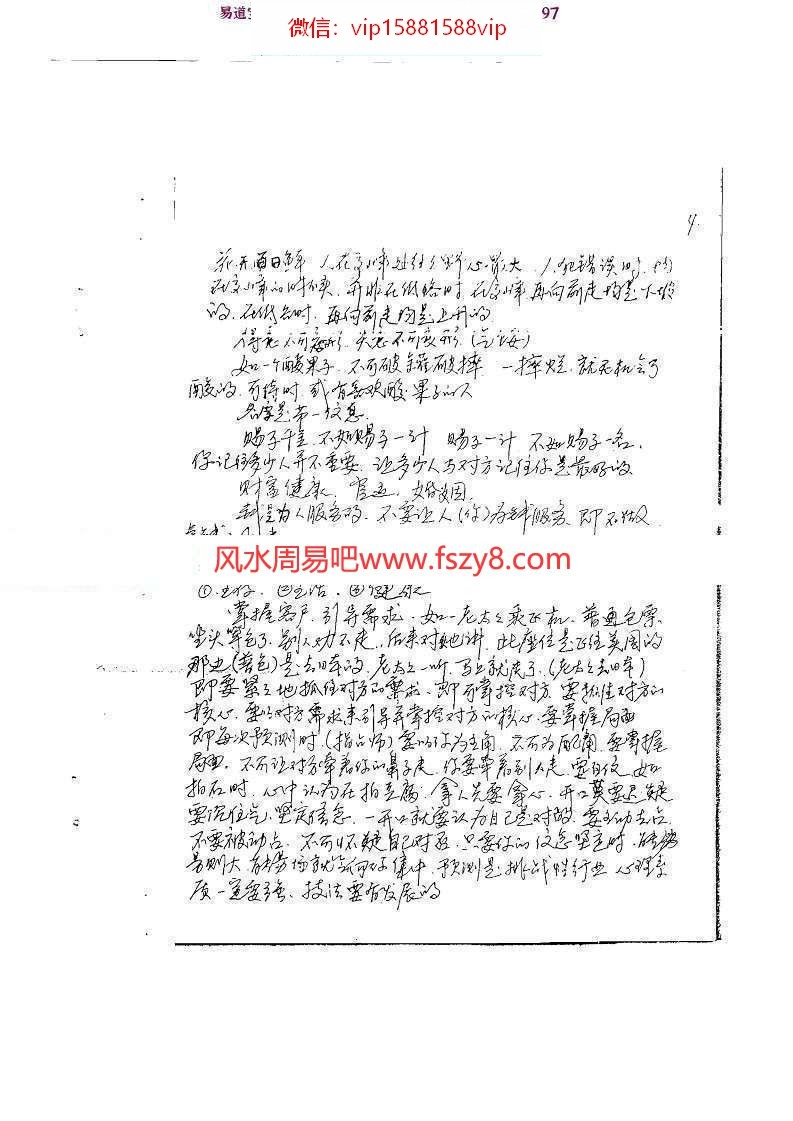 易道
微信：vip15881588vip
97
4.
花无百日鲜 人在高峰处往往野心最大 人犯错误时
在高峰的时候 并非在低谷时 在高峰再向前走均是下坡
的 在低谷时 再向前走均是上升的
得意不可忘形 失意不可变形
如一个酸果子 不可破罐破摔 一摔烂 就无机会了
酸的 可待时 或有喜欢酸果子的人
名字是第一信息
赐子千金 不如赐子一计 赐子一计 不如赐子一名
你记住多少人并不重要 让多少人与对方记住你是最好的
财富 健康 官运 婚姻
为人服务的 不要让人(你)为我服务 即不做
风水周易吧www.fszy8.com
①工作 ②生活 ③健康
掌握客户 引导需求 如一老太太乘飞机 普通仓票
坐头等仓了 别人劝不走 后来对她讲 此座位是飞往美国的
那边(普仓)是去日本的 老太太一听 马上就走了 (老太太去日本)
即要紧紧地抓住对方的需求 即可掌控对方 要抓住对方的
核心 要以对方需求来引导并掌控对方的核心 要掌握局面
即每次预测时(指占师)要以你为主角 不可为配角 要掌握
局面 不可让对方牵着你的鼻子走 你要牵着别人走 要自信 如
拍石时 心中认为在拍豆腐 拿人先要拿心 开口莫要迟疑
要沉住气 坚定信念 一开口就要认为自己是对的 要主动去占
不要被动占 不可怀疑自己对否 只要你的信念坚定时 能量
场则大 能量信就会向你集中 预测是挑战性行业 心理素
质一定要强 技法要有发展的